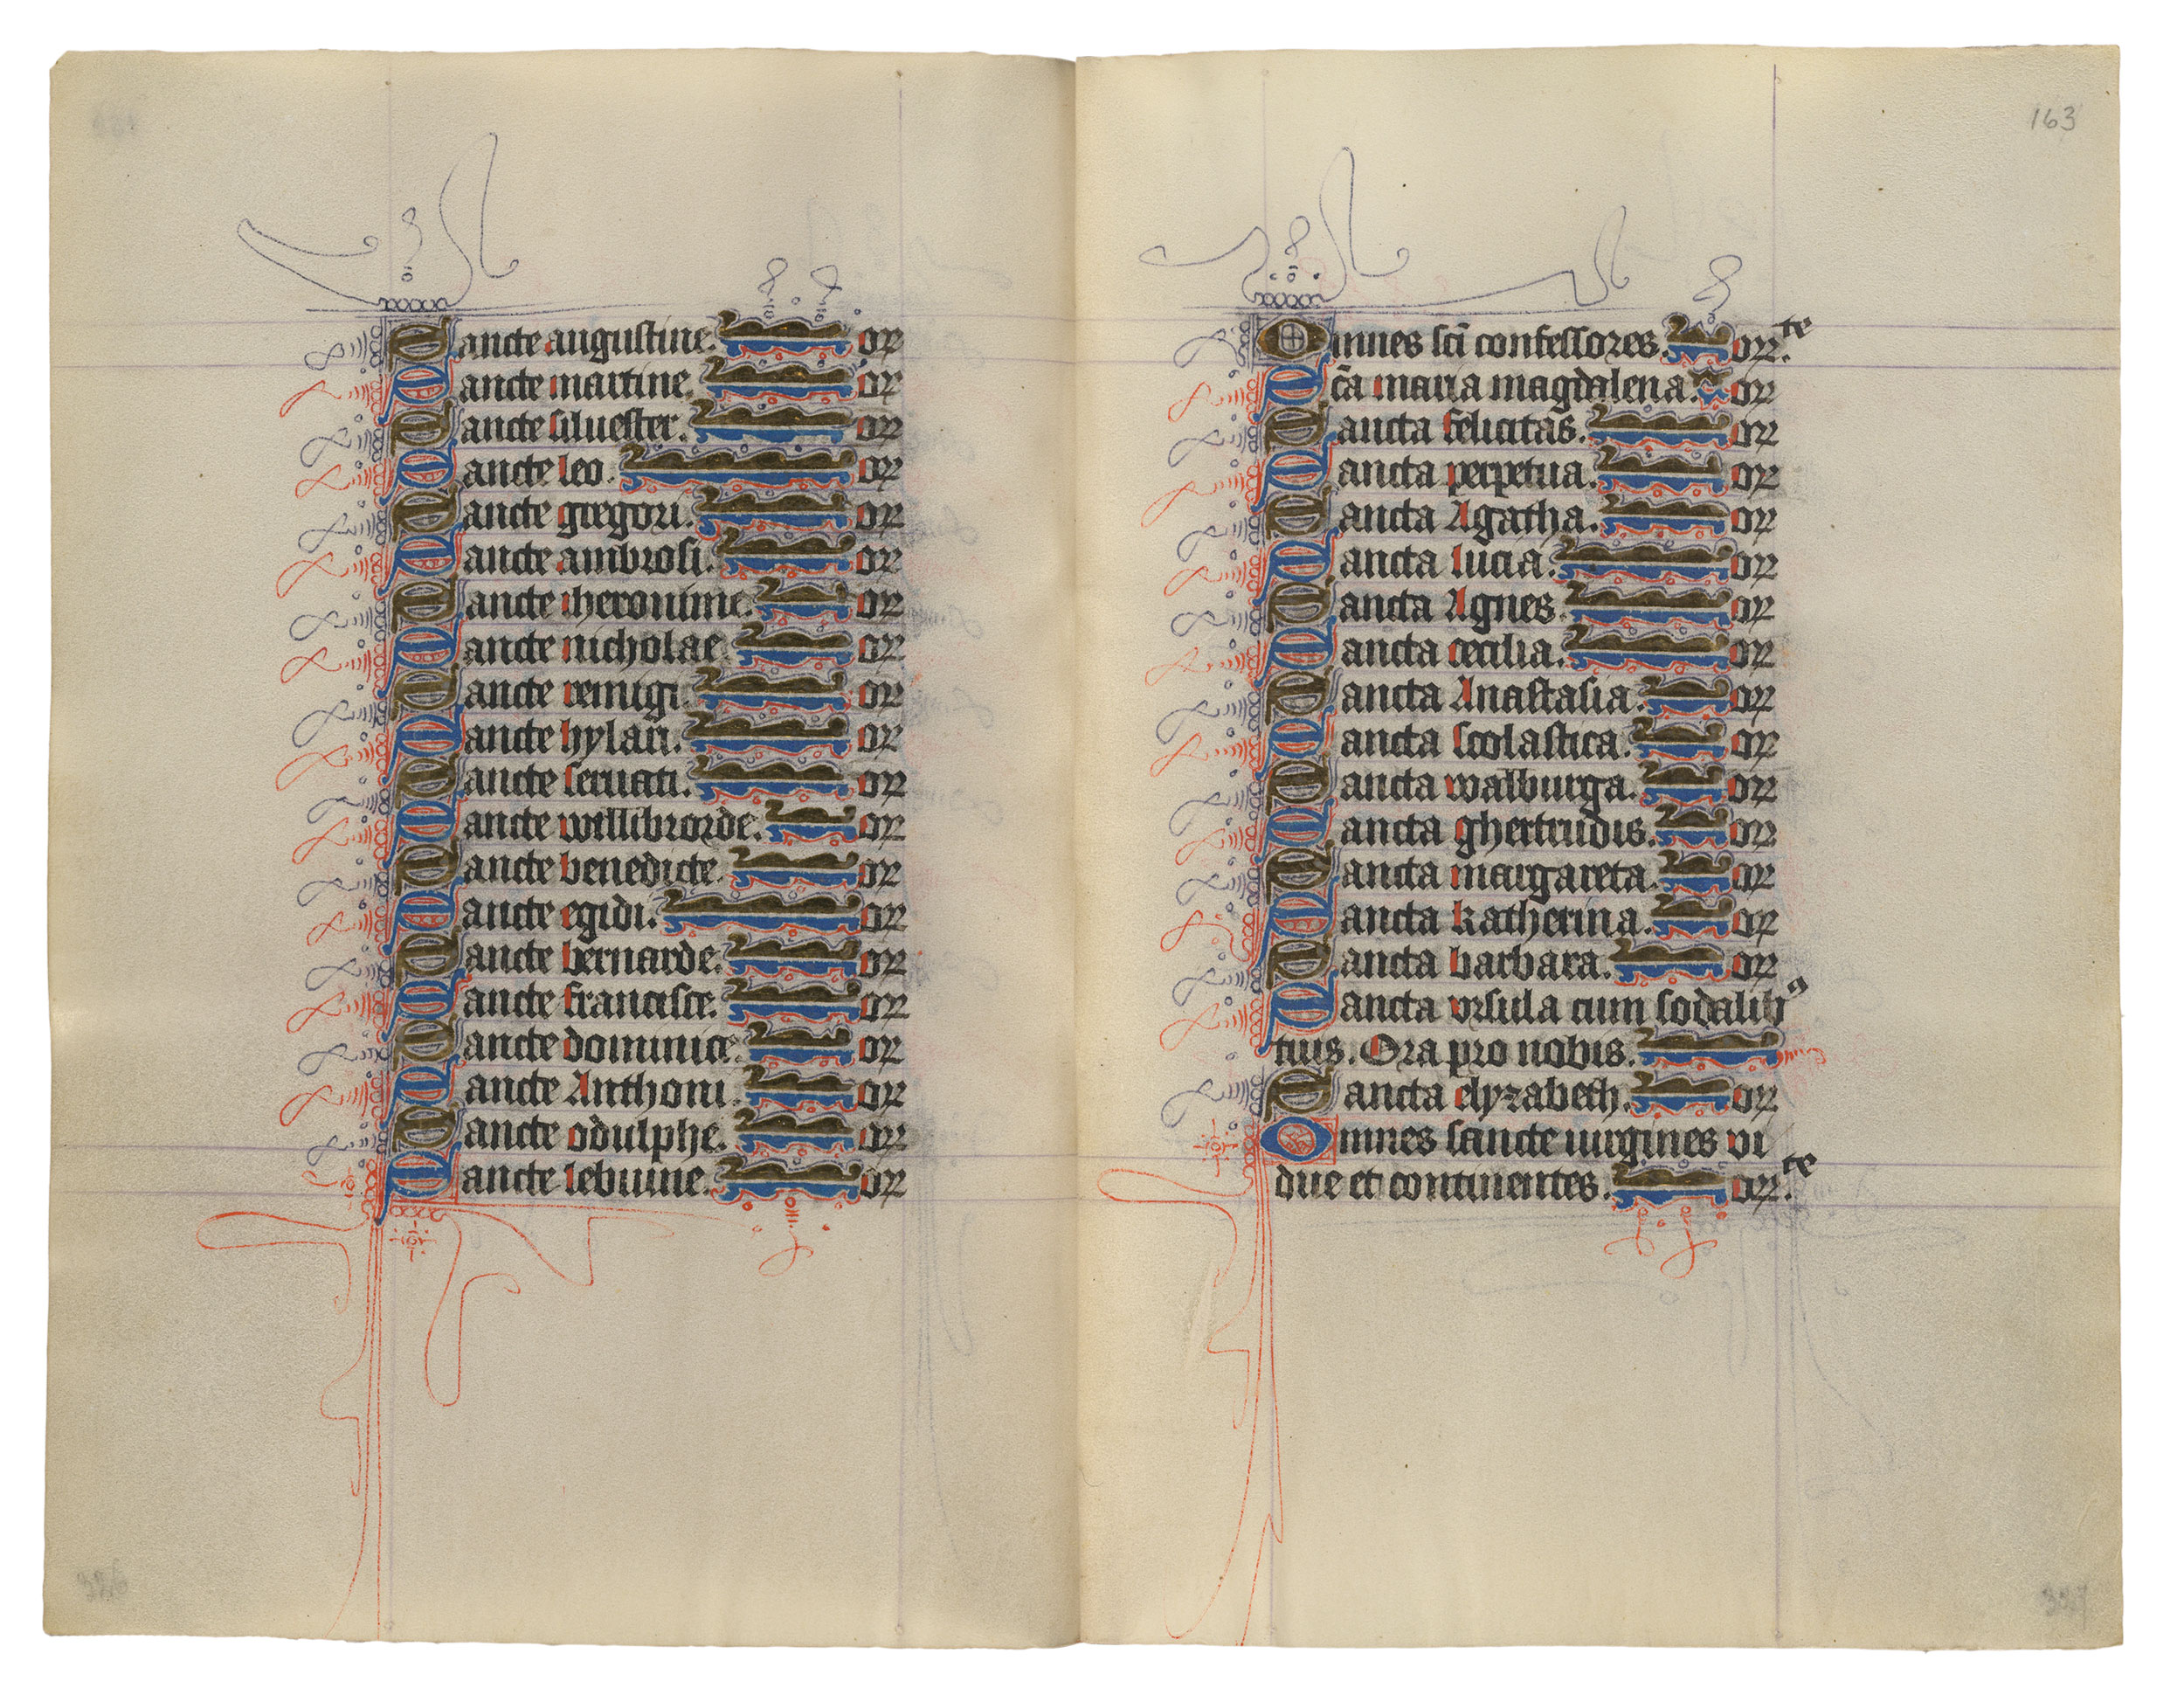 Sancte augustine. or
Sancte martine. or
Sancte siluester. or
Sancte leo. or
Sancte gregori. or
Sancte ambrosi. or
Sancte iheronime. or
Sancte nicholae. or
Sancte remigi. or
Sancte hylari. or
Sancte seruati. or
Sancte willibrorde. or
Sancte benedicte. or
Sancte egidi. or
Sancte bernarde. or
Sancte francisce. or
Sancte dominice. or
Sancte Anthoni. or
Sancte odulphe. or
Sancte lebuine. or
163
Omnes sc̄i confessores. or.te
Sc̄a maria magdalena. or
Sancta felicitas. or
Sancta perpetua. or
Sancta Agatha. or
Sancta lucia. or
Sancta Agnes. or
Sancta cecilia. or
Sancta Anastasia. or
Sancta scolastica. or
Sancta walburga. or
Sancta ghertrudis. or
Sancta margareta. or
Sancta katherina. or
Sancta barbara. or
Sancta vrsula cum sodalibꝰ
tuis. Ora pro nobis.
Sancta elyzabeth. or
Omnes sancte uirgines vi
due et continentes. or.te